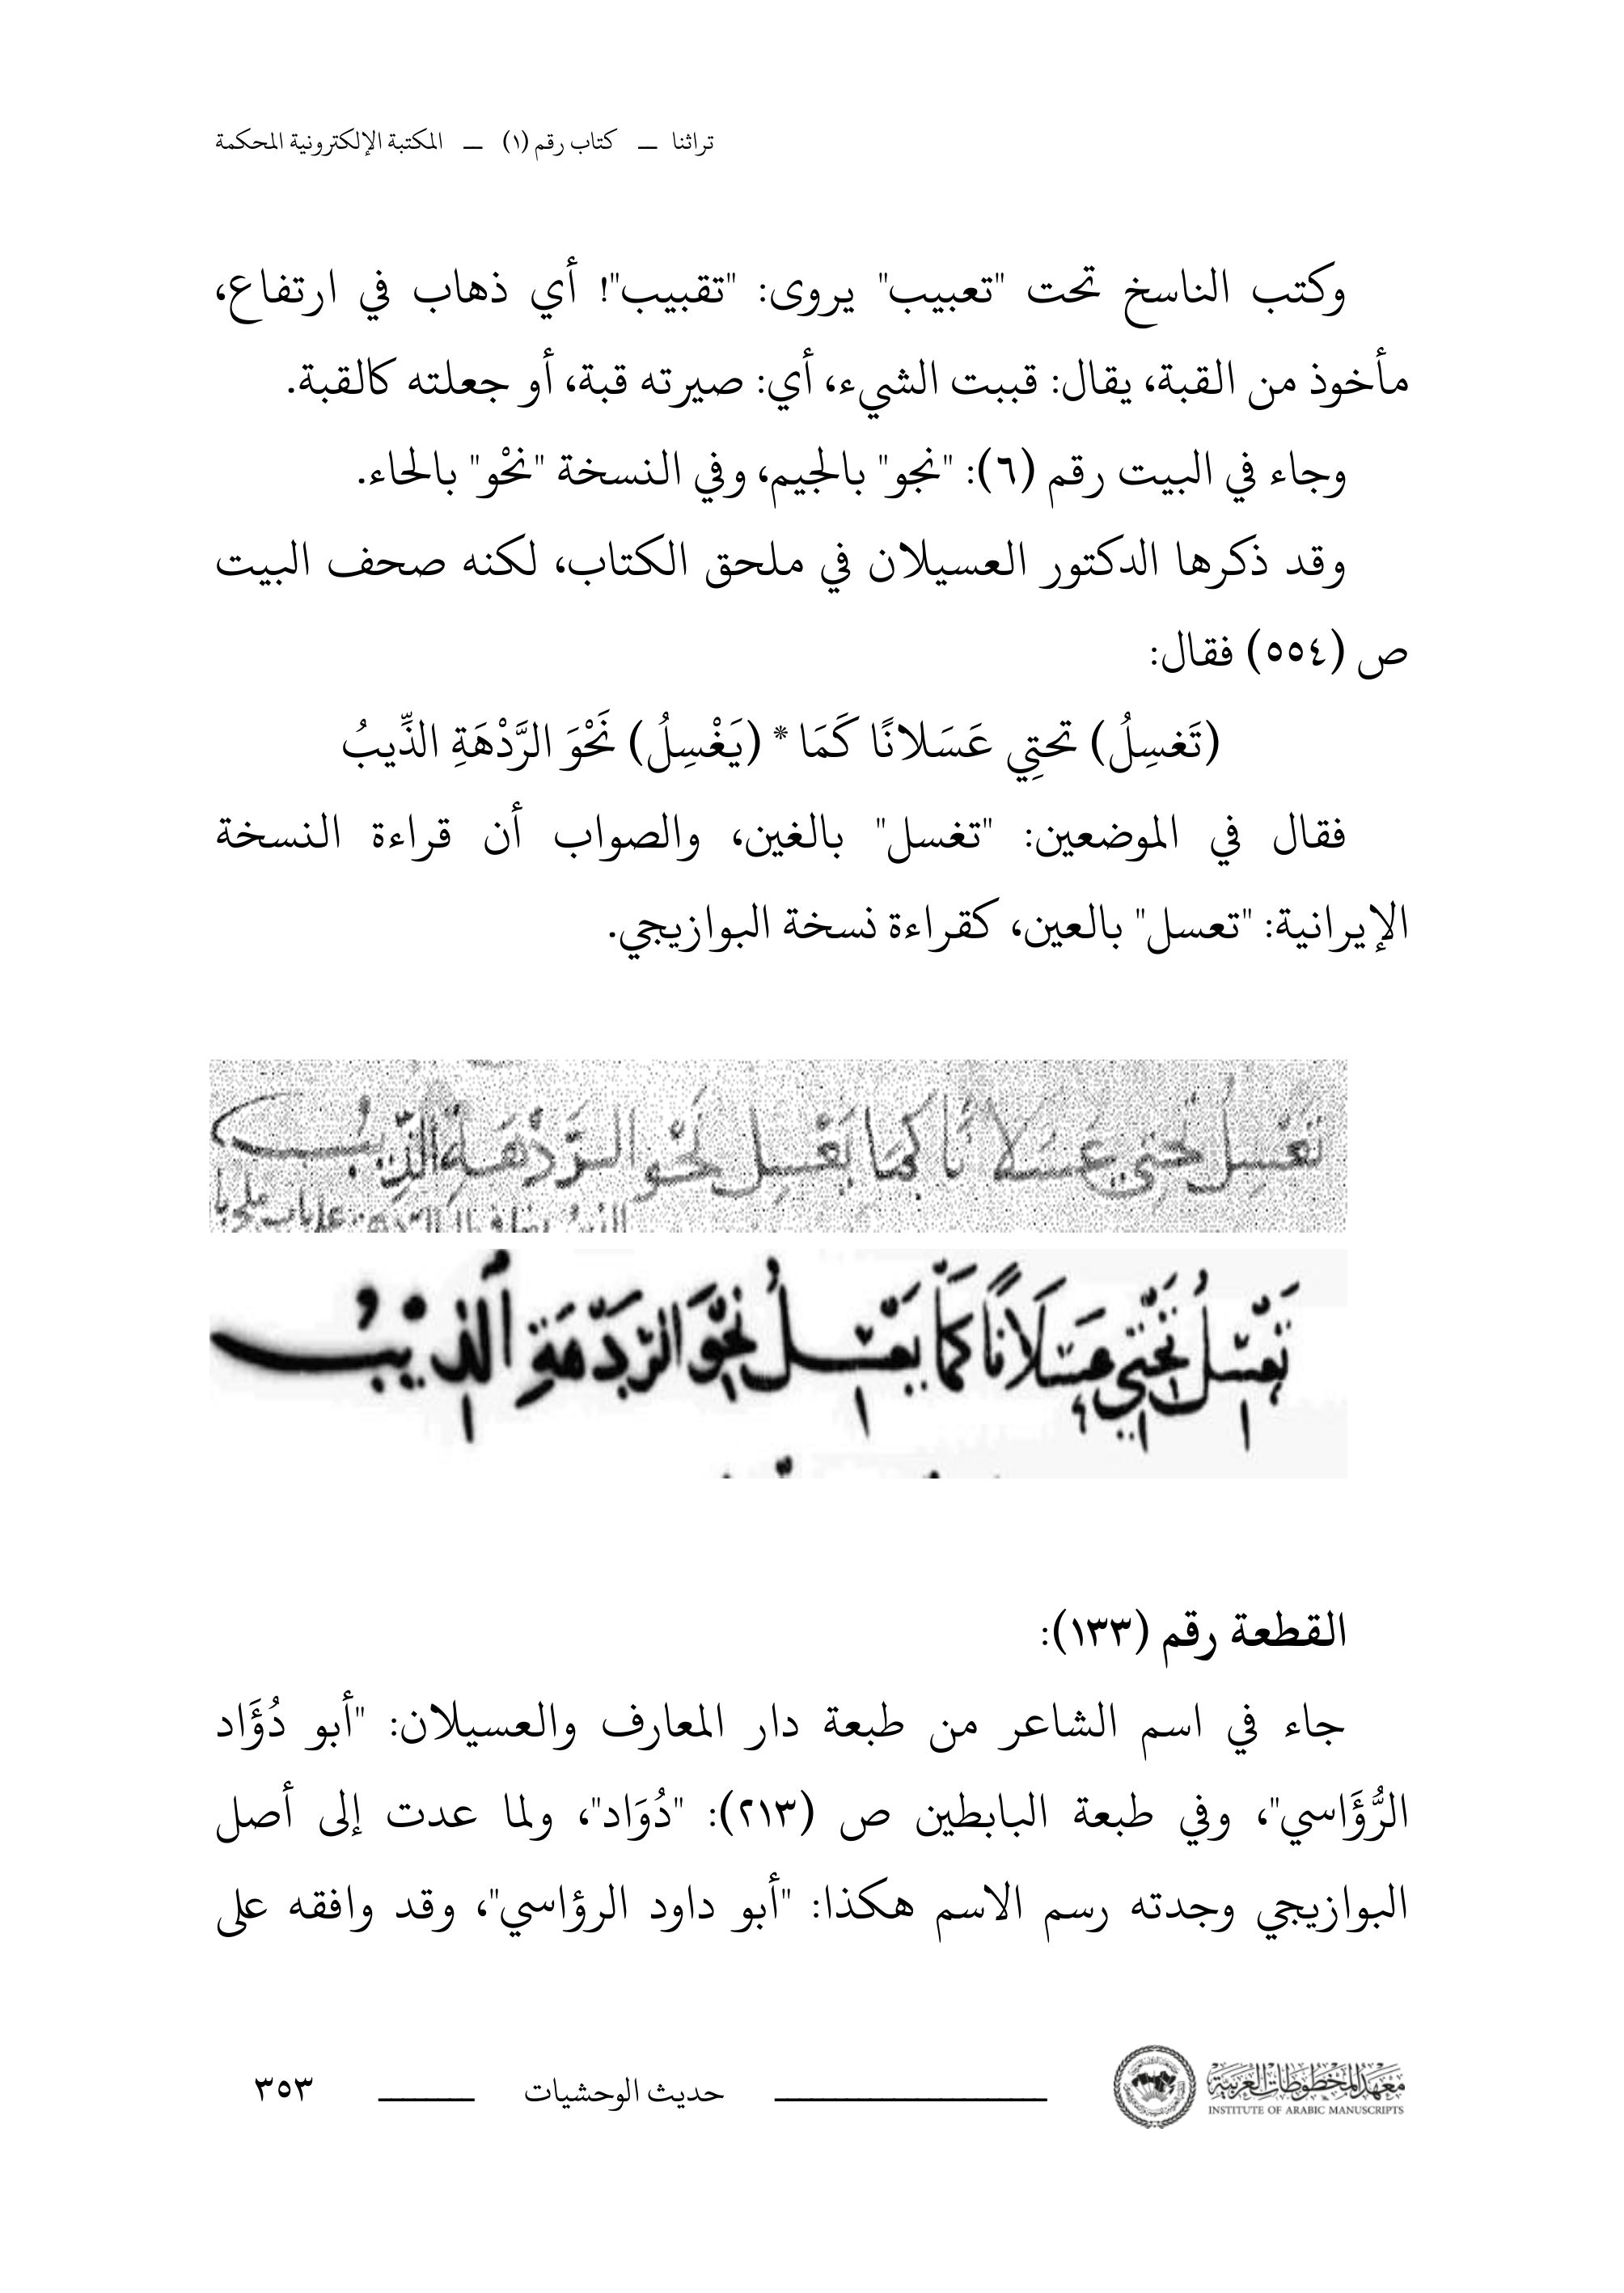 تراثنا — كتاب رقم (١) — المكتبة الإلكترونية المحكمة
وكتب الناسخ تحت "تعبيب" يروى: "تقبيب"! أي ذهاب في ارتفاع،
مأخوذ من القبة، يقال: قببت الشيء، أي: صيرته قبة، أو جعلته كالقبة.
وجاء في البيت رقم (٦): "نجو" بالجيم، وفي النسخة "نحْو" بالحاء.
وقد ذكرها الدكتور العسيلان في ملحق الكتاب، لكنه صحف البيت
ص (٥٥٤) فقال:
(تَغسِلُ) تحتِي عَسَلانًا كَمَا * (يَغْسِلُ) نَحْوَ الرَّدْهَةِ الذِّيبُ
فقال في الموضعين: "تغسل" بالغين، والصواب أن قراءة النسخة
الإيرانية: "تعسل" بالعين، كقراءة نسخة البوازيجي.
تَعْسِلُ تحتِي عَسَلانًا كما يَعْسِل نَحْو الرَّدْهَةِ الذِّيبُ
تَعْسِلُ تَحْتِي عَسَلَانًا كَمَا يَعْسِلُ نَحْوَ الرَّدْهَةِ الذِيْبُ
القطعة رقم (١٣٣):
جاء في اسم الشاعر من طبعة دار المعارف والعسيلان: "أبو دُؤَاد
الرُّؤَاسي"، وفي طبعة البابطين ص (٢١٣): "دُوَاد"، ولما عدت إلى أصل
البوازيجي وجدته رسم الاسم هكذا: "أبو داود الرؤاسي"، وقد وافقه على
معهد المخطوطات العربية
INSTITUTE OF ARABIC MANUSCRIPTS
حديث الوحشيات
٣٥٣